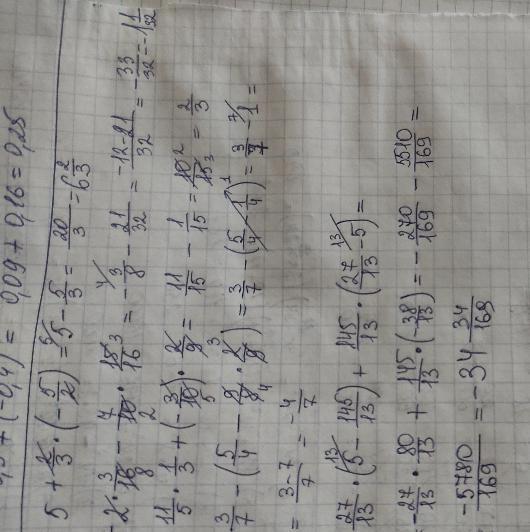 ,3 + (-0,4) = 0,09 + 0,16 = 0,25
5 + 2/3 · (-5/2) = 5 - 5/3 = 20/3 = 6 2/3
-2 · 3/16 - 7/10 · 15/16 = -3/8 - 21/32 = -12-21/32 = -33/32 = -1 1/32
11/5 · 1/3 + (-3/10) · 2/9 = 11/15 - 1/15 = 10/15 = 2/3
3/7 - (5/4 - 9/8 · 2/9) = 3/7 - (5/4 - 1/4) = 3/7 - 1 =
= 3-7/7 = -4/7
27/13 · (5 - 145/13) + 145/13 · (27/13 - 5) =
= -27/13 · 80/13 + 145/13 · (-38/13) = -270/169 - 5510/169 =
-5780/169 = -34 34/169